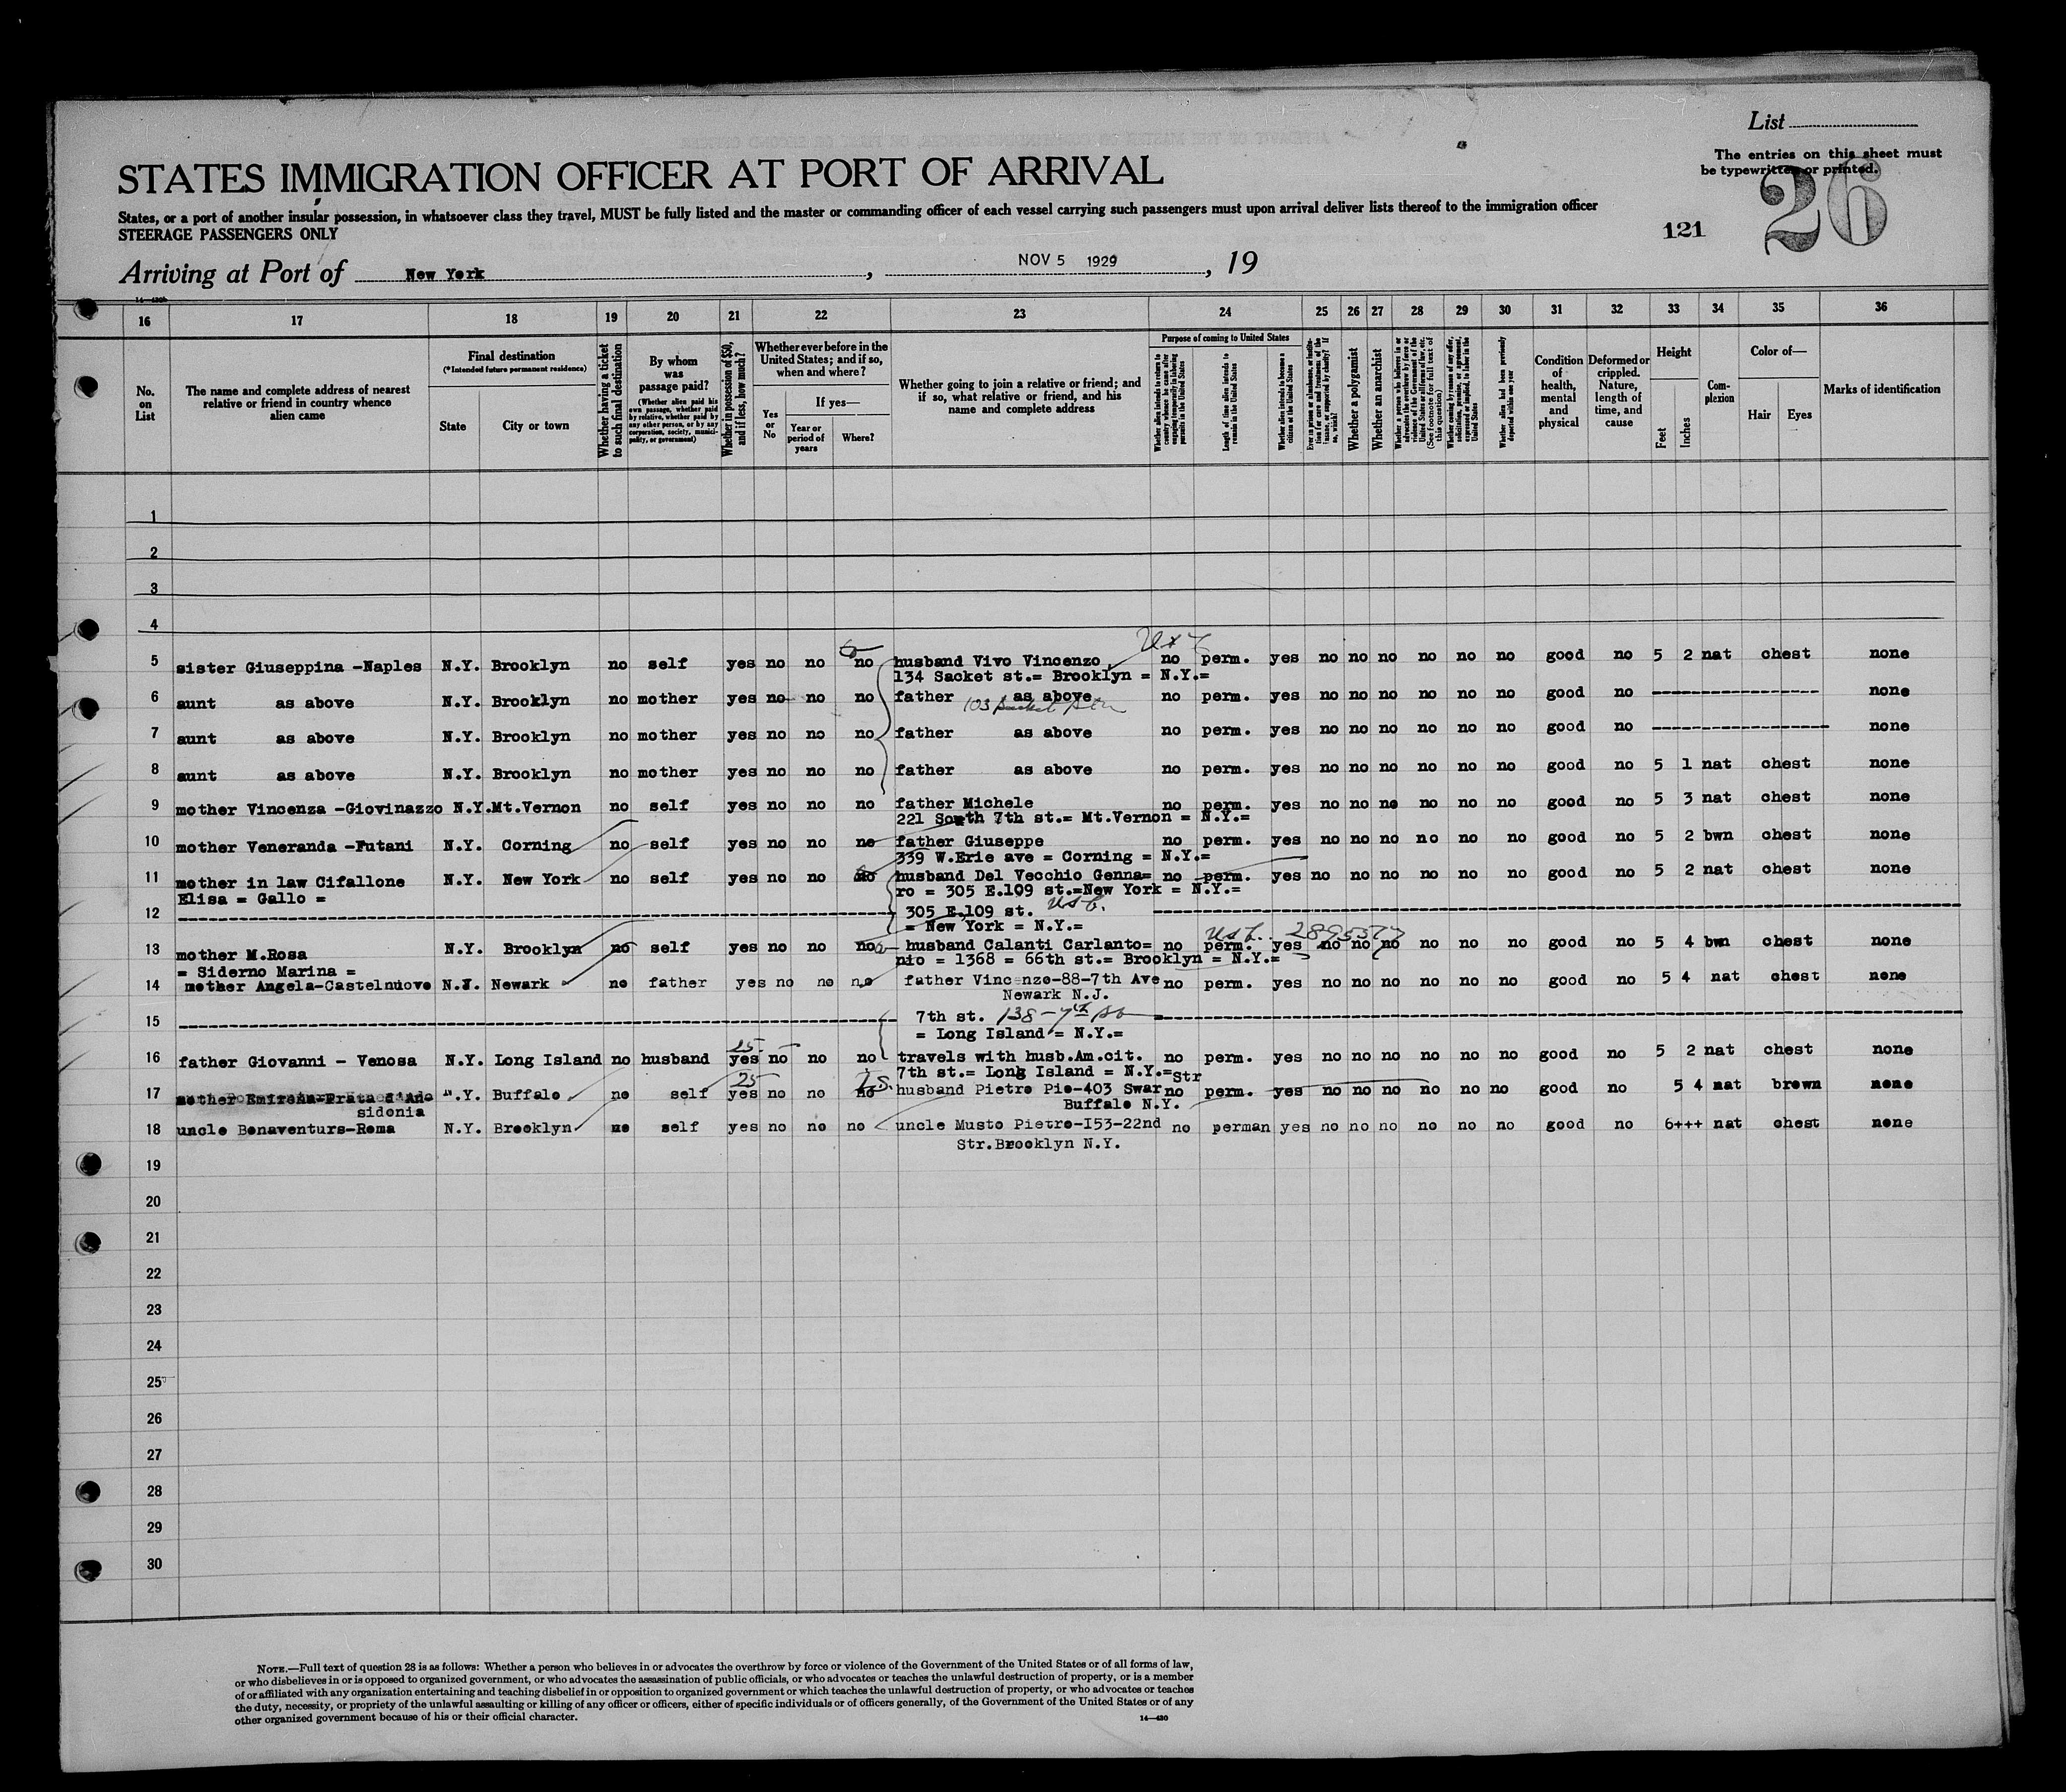 List
The entries on this sheet must
be typewritten or printed.
STATES IMMIGRATION OFFICER AT PORT OF ARRIVAL
26
States, or a port of another insular possession, in whatsoever class they travel, MUST be fully listed and the master or commanding officer of each vessel carrying such passengers must upon arrival deliver lists thereof to the immigration officer
STEERAGE PASSENGERS ONLY
121
Arriving at Port of New York , NOV 5 1929 , 19
16 17 18 19 20 21 22 23 24 25 26 27 28 29 30 31 32 33 34 35 36
No. on List
The name and complete address of nearest relative or friend in country whence alien came
Final destination
(*Intended future permanent residence)
State
City or town
Whether having a ticket to such final destination
By whom was passage paid?
(Whether alien paid his own passage, whether paid by relative, whether paid by any other person, or by any corporation, society, municipality, or government)
Whether in possession of $50, and if less, how much?
Whether ever before in the United States; and if so, when and where?
Yes or No
If yes—
Year or period of years
Where?
Whether going to join a relative or friend; and if so, what relative or friend, and his name and complete address
Purpose of coming to United States
Length of time alien intends to remain in the United States
Whether alien intends to become a citizen of the United States
Whether a polygamist
Whether an anarchist
Condition of health, mental and physical
Deformed or crippled. Nature, length of time, and cause
Height
Feet
Inches
Complexion
Color of—
Hair
Eyes
Marks of identification
1
2
3
4
5 sister Giuseppina -Naples N.Y. Brooklyn no self yes no no no husband Vivo Vincenzo no perm. yes no no no no no no good no 5 2 nat chest none
134 Sacket st.= Brooklyn = N.Y.=
6 aunt as above N.Y. Brooklyn no mother yes no no no father as above no perm. yes no no no no no no good no ------------------ none
103
7 aunt as above N.Y. Brooklyn no mother yes no no no father as above no perm. yes no no no no no no good no ------------------- none
8 aunt as above N.Y. Brooklyn no mother yes no no no father as above no perm. yes no no no no no no good no 5 1 nat chest none
9 mother Vincenza -Giovinazzo N.Y. Mt.Vernon no self yes no no no father Michele no perm. yes no no no no no no good no 5 3 nat chest none
221 South 7th st.= Mt.Vernon = N.Y.=
10 mother Veneranda -Futani N.Y. Corning no self yes no no no father Giuseppe no perm. yes no no no no no no good no 5 2 bwn chest none
339 W.Erie ave = Corning = N.Y.=
11 mother in law Cifallone N.Y. New York no self yes no no no husband Del Vecchio Genna= no perm. yes no no no no no no good no 5 2 nat chest none
Elisa = Gallo = ro = 305 E.109 st.=New York = N.Y.=
12 305 E.109 st.
= New York = N.Y.=
13 mother M.Rosa N.Y. Brooklyn no self yes no no no husband Calanti Carlanto= no perm. yes no no no no no no good no 5 4 bwn chest none
= Siderno Marina = nio = 1368 = 66th st.= Brooklyn = N.Y.=
14 mother Angela-Castelnuovo N.J. Newark no father yes no no no father Vincenzo-88-7th Ave no perm. yes no no no no no no good no 5 4 nat chest none
Newark N.J.
15 7th st. 138-7th
= Long Island = N.Y.=
25
16 father Giovanni - Venosa N.Y. Long Island no husband yes no no no travels with husb.Am.cit. no perm. yes no no no no no no good no 5 2 nat chest none
7th st.= Long Island = N.Y.=
25
17 mother .Y. Buffalo no self yes no no no husband Pietro Pio-403 Swar Str no perm. yes no no no no no no good no 5 4 nat brown none
sidonia Buffalo N.Y.
18 uncle Bonaventurs-Roma N.Y. Brooklyn no self yes no no no uncle Musto Pietro-I53-22nd no perman yes no no no no no no good no 6+++ nat chest none
Str.Brooklyn N.Y.
19
20
21
22
23
24
25
26
27
28
29
30
NOTE.—Full text of question 28 is as follows: Whether a person who believes in or advocates the overthrow by force or violence of the Government of the United States or of all forms of law,
or who disbelieves in or is opposed to organized government, or who advocates the assassination of public officials, or who advocates or teaches the unlawful destruction of property, or is a member
of or affiliated with any organization entertaining and teaching disbelief in or opposition to organized government or which teaches the unlawful destruction of property, or who advocates or teaches
the duty, necessity, or propriety of the unlawful assaulting or killing of any officer or officers, either of specific individuals or of officers generally, of the Government of the United States or of any
other organized government because of his or their official character.
14—430